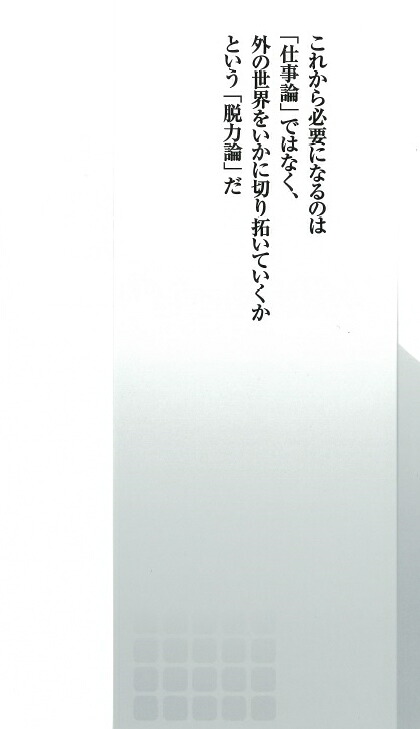 これから必要になるのは
「仕事論」ではなく、
外の世界をいかに切り拓いていくか
という「脱力論」だ